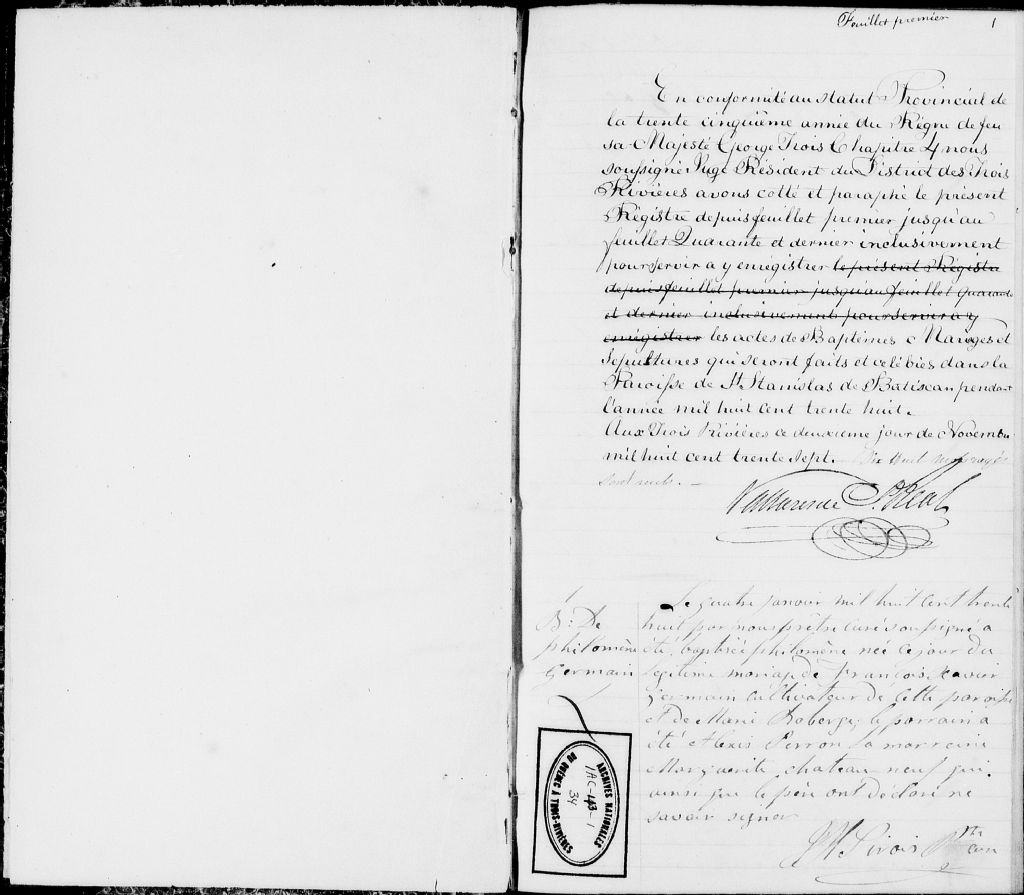 Feuillet premier 1
En conformité au statut Provincial de
la trente cinquième année du Règne de feu
sa Majesté George Trois Chapitre 4 nous
soussigné Juge Résident du District des Trois
Rivières avons cotté et paraphé le présent
Régistre depuis feuillet premier jusqu'au
feuillet Quarante et dernier inclusivement
pour servir a y enrégistrer le présent Régistre
depuis feuillet premier jusqu'au feuillet Quarante
et dernier inclusivement pour servir a y
enrégistrer les actes de Baptêmes Mariages et
Sepultures qui seront faits et celébrés dans la
Paroisse de St. Stanislas de Batiscan pendant
l'année mil huit cent trente huit.
Aux Trois Rivières ce deuxieme jour de Novembre
mil huit cent trente sept. Dix huit mots rayés
sont nuls. —
Vallières de St. Réal
1
B: De
philomène
Germain
Le quatre janvier mil huit cent trente
huit par nous prêtre curé soussigné a
été baptisée philomène née ce jour du
légitime mariage de François Xavier
Germain cultivateur de cette paroisse
et de Marie Roberge; le parrain a
été Alexis Perron la marraine
Marguerite chateauneuf qui
ainsi que le père ont déclaré ne
savoir signer
Sirois Ptre
curé
ARCHIVES NATIONALES
DU QUÉBEC À TROIS-RIVIÈRES
1AC-43-1
34